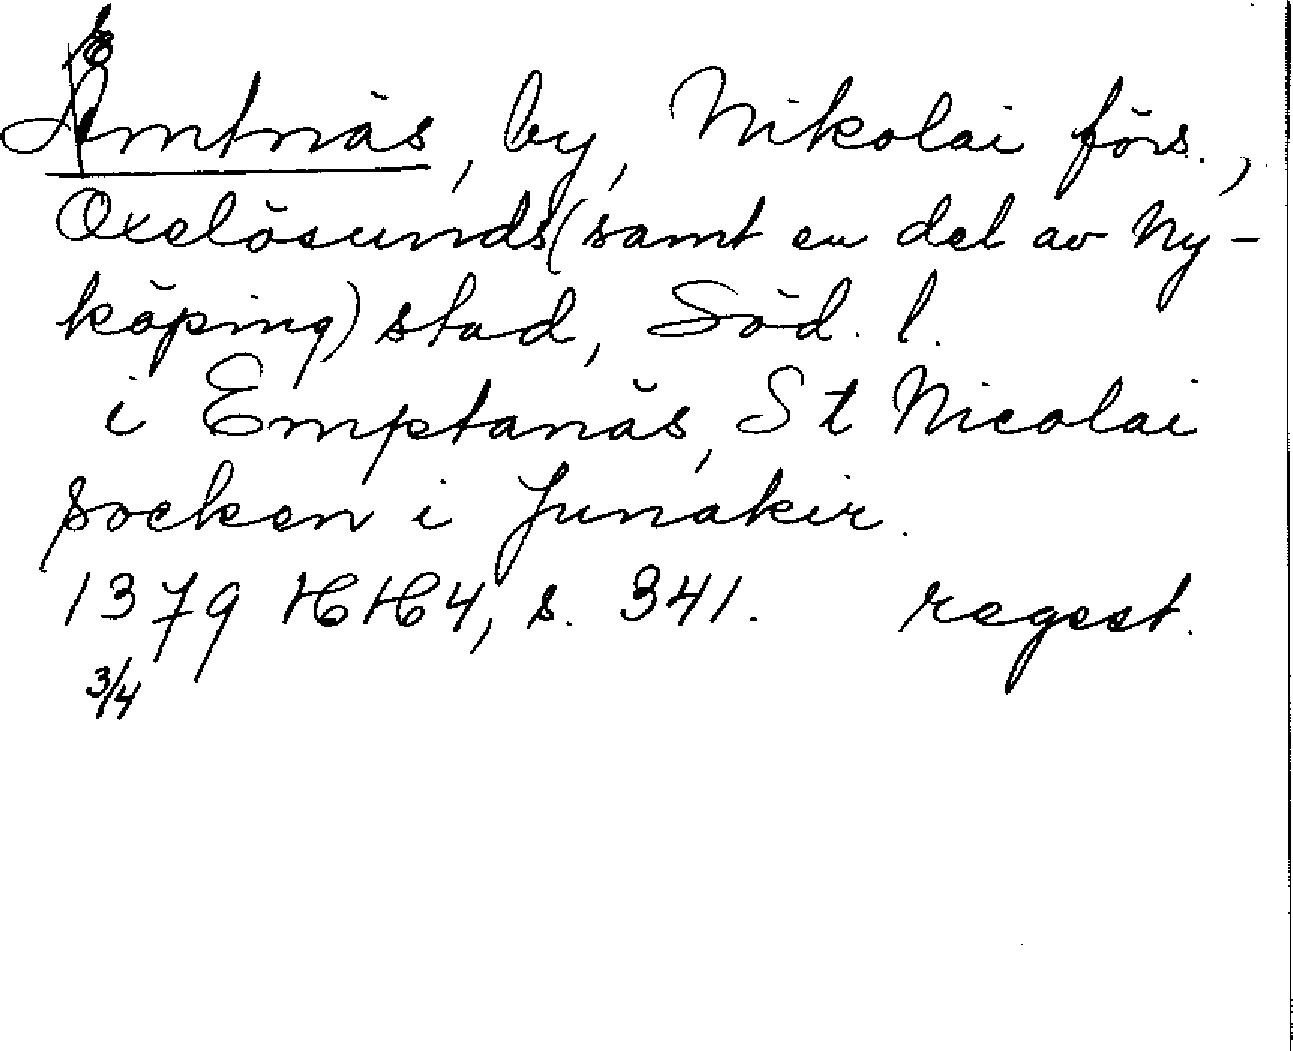 E
Amtnäs, by, Nikolai förs.,
Oxelösunds (samt en del av Ny-
köping) stad, Söd. l.
i Emptanäs, St Nicolai
socken i Junakir.
1379 HH4, s. 341. regest.
3/4